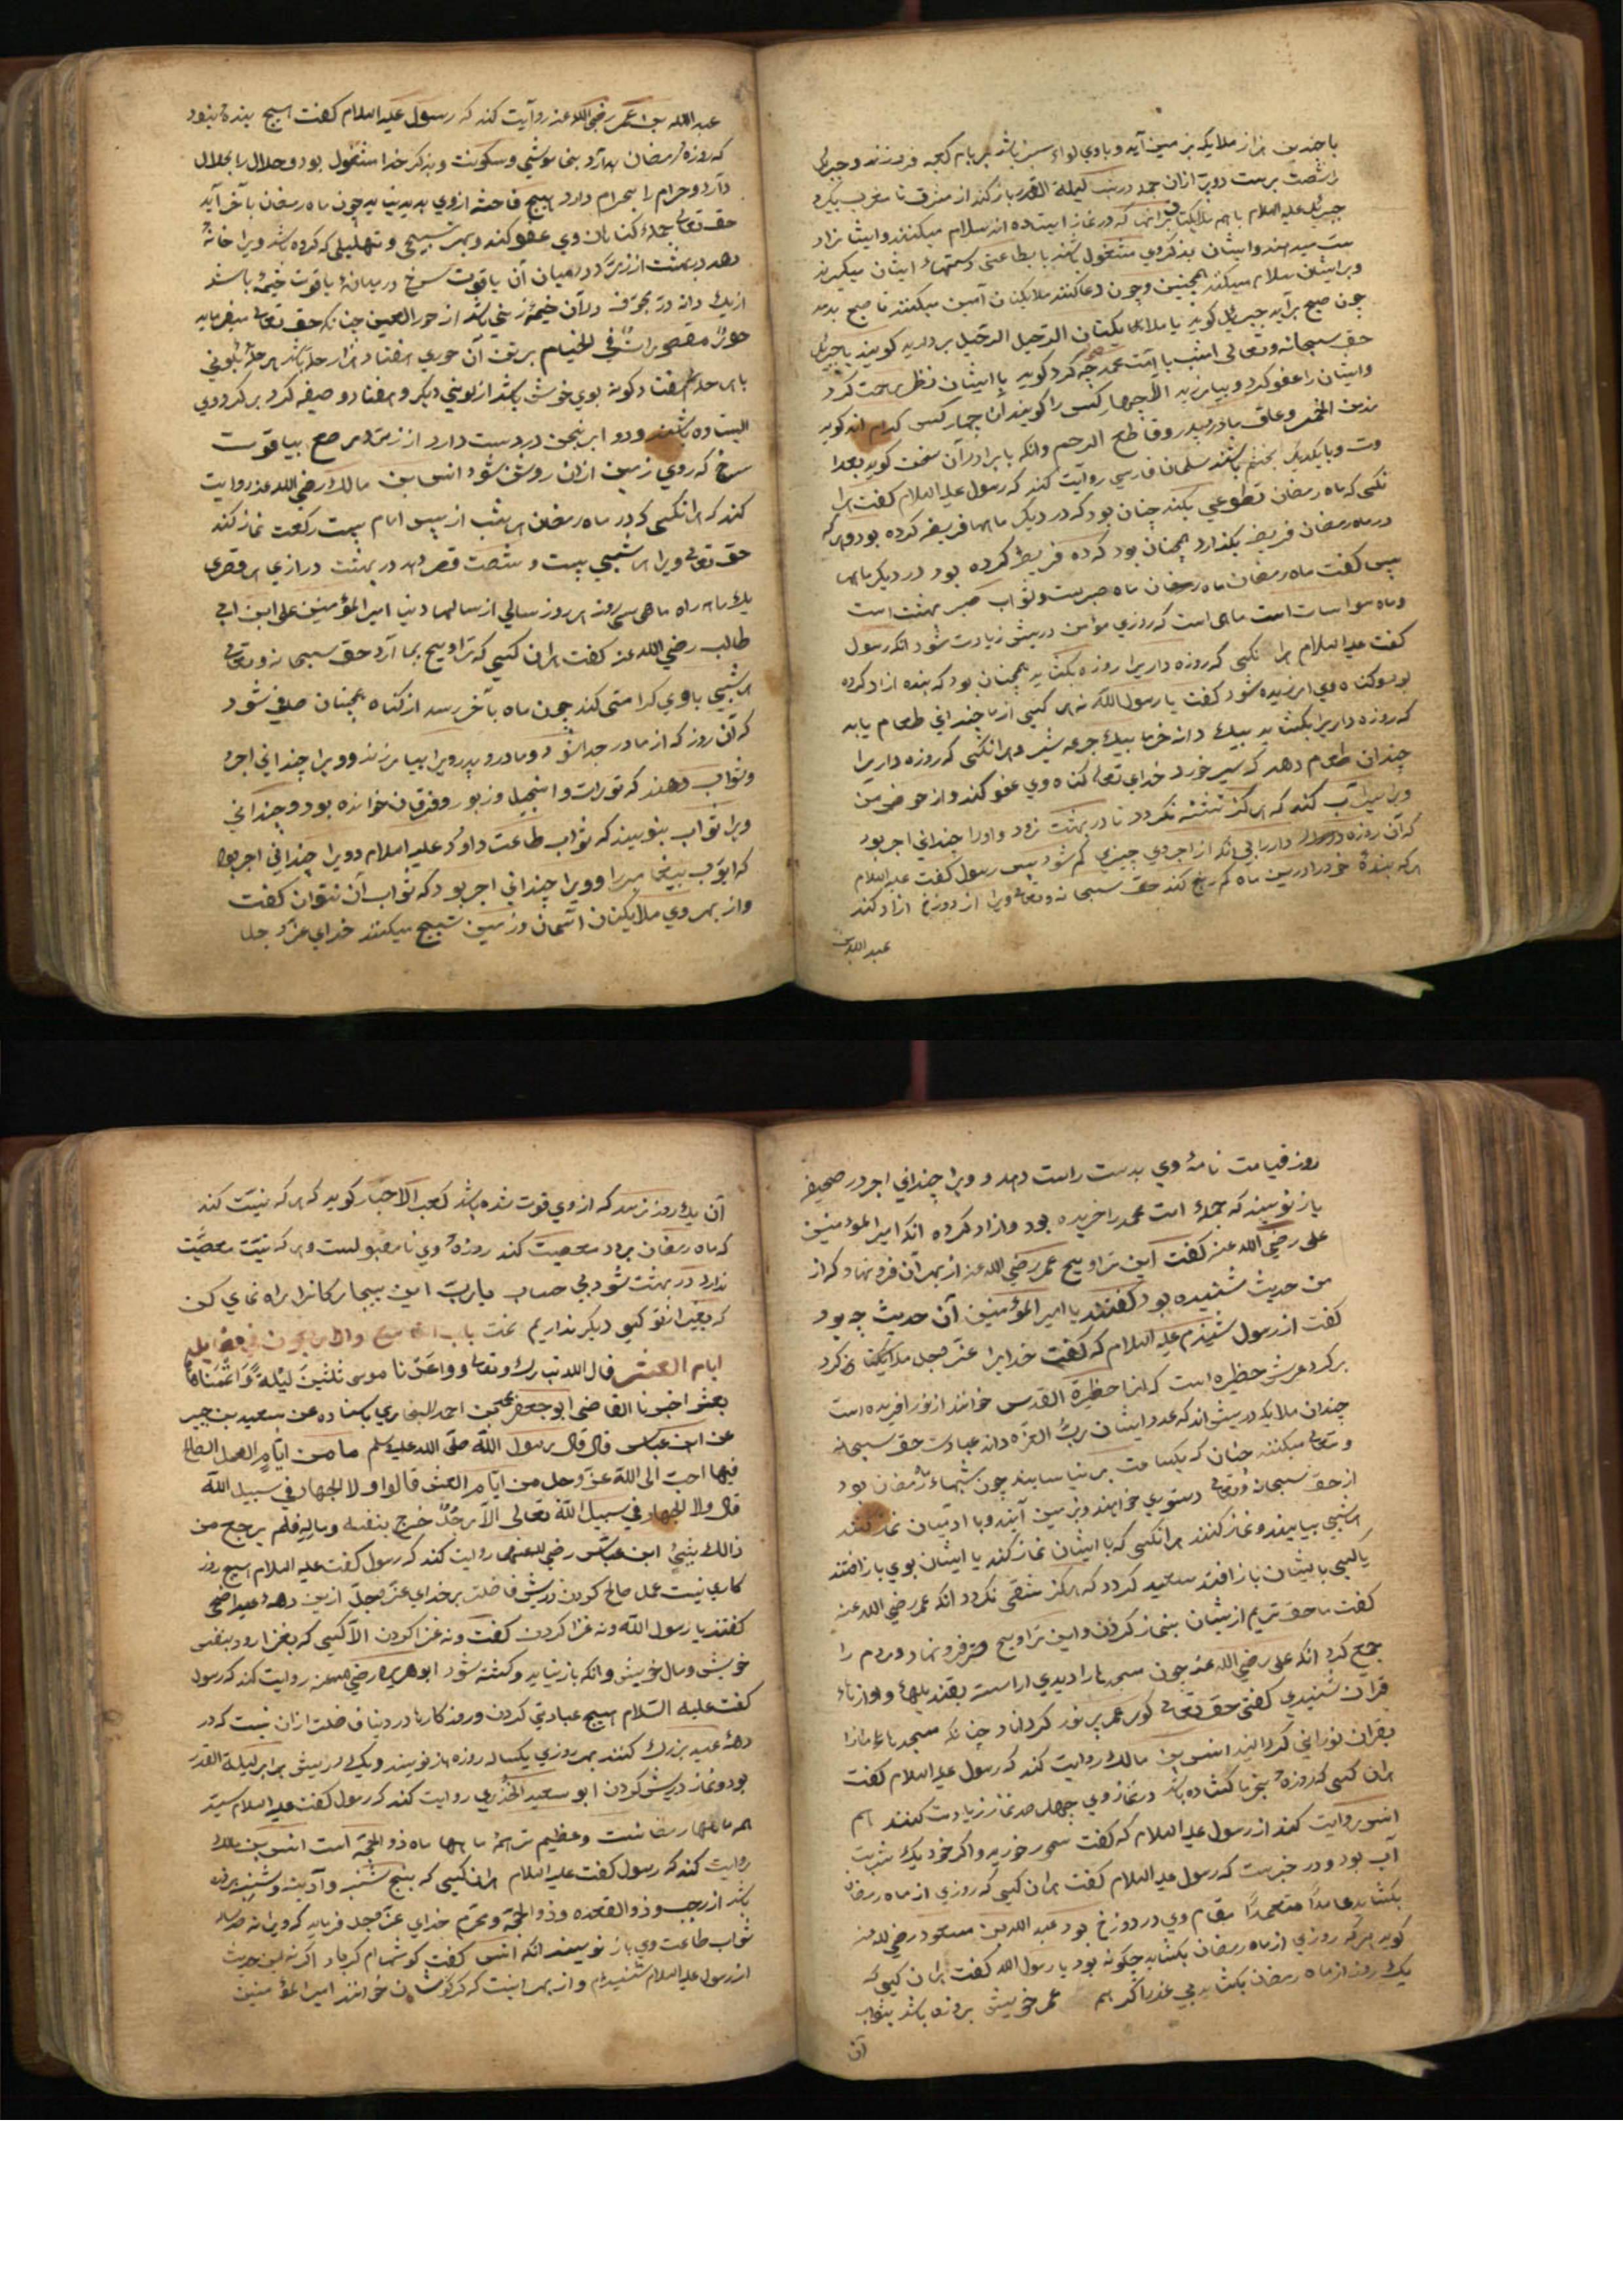 با چندین هزار ملایکه بزمین آید و با وی لواء سبز باشد بر بام کعبه فروزند و جبریل
را شصت پرست دو پر ازان جمله در شب لیلة القدر باز کند از مشرق تا مغرب بگیرد
جبرئل علیه السلام با همه ملایکتان برانها که در نماز ایستاده اند سلام میکنند وایشانرا
ست میدهند وایشان بذکر وی مشغول باشند یا بطاعتی دستهاء ایشان میگیرند
وبرایشان سلام میکنند همچنین وچون دعا کنند ملایکتان آمین میکنند تا صبح بدمد
چون صبح برآید جبریل کوید یا ملایکتان الرحیل الرحیل بردارید کویند یا جبریل
حق سبحانه وتعالی امشب با امت محمد چه کرد کوید با ایشان نظر رحمت کرد
وایشان را عفو کرد و بیامرزید الا چهار کس را کویند آن چهار کس کدام اند کوید
مدمن الخمر وعاق مادر وپدر وقاطع الرحم وانکه با برادرآن سخن کوید بعدا
وت و با یکدیگر بخشم باشند سلمان فارسی روایت کند که رسول علیه السلام کفت هر ا
نکسی که ماه رمضان تطوعی بکند چنان بود که در دیگر ماهها فریضه کرده بود وهر که
در ماه رمضان فریضه بکذارد همچنان بود که ده فریضه کرده بود در دیگر ماهها
پس کفت ماه رمضان ماه رمضان ماه صبرست وثواب صبر بهشت است
وماه مواسات است ماهی است که روزی مؤمن دریش زیادت شود انکه رسول
کفت علیه السلام هر ا نکسی که روزه داریرا روزه بکشاید همچنان بود که بنده ازاد کرده
بود وکناه وی امرزیده شود کفت یا رسول الله نه هر کسی از ما چندانی طعام یابد
که روزه داریرا بکشاید بیک دانه خرما بیک جرعه شیر وهر انکسی که روزه داریرا
چندان طعام دهد که سیر خورد خدای تعالی کناه وی عفو کند واز حوض من
ویرا سیراب کند که هرکز تشنه نکردد تا در بهشت رود واورا چندانی اجر بود
که آن روزه دار را بی انکه از اجر وی چیزی کم شود پس رسول کفت علیه السلام
هر که بندهٔ خود را درین ماه کم رنج کند حق سبحانه وتعالی ویرا از دوزخ ازاد کند
عبد الله بن
عبد الله بن عمر رضی الله عنه روایت کند که رسول علیه السلام کفت هیچ بندهٔ نبود
که روزهٔ رمضان بدارد بخاموشی وسکونت وبذکر خدا مشغول بود وحلال را بحلال
دارد وحرام را بحرام دارد هیچ فاحشه ازوی پدید نیاید چون ماه رمضان بآخر آید
حق تعالی جملهٔ کناهان وی عفو کند وبهر تسبیحی و تهلیلی که کرده باشد ویرا خانهٔ
دهد در بهشت از زمرّد در میان آن یاقوت سرخ در میانهٔ یاقوت خیمهٔ باشد
از یک دانه درّ مجوّف درآن خیمه زنی باشد از حور العین چنانکه حق تعالی میفرماید
حورٌ مقصوراتٌ فی الخیام بر تن آن حوری هفتاد هزار حله باشد هر حلهٔ بلونی
با هر حلهٔ هفتاد کونه بوی خوش باشد از لونی دیگر وهفتاد وصیفه کرد بر کرد وی
ایستاده باشند ودو ابرنجن در دست دارد از زر مرصع بیاقوت
سرخ که روی زمین ازان روشن شود انس بن مالک رضی الله عنه روایت
کند که هر انکسی که در ماه رمضان هر شب از پس امام بیست رکعت نماز کند
حق تعالی ویرا هر شبی بیست و شصت قصر دهد در بهشت درازی هر قصری
یک ماهه راه ماهی سی روز هر روز سالی از سالهاء دنیا امیر المؤمنین علی ابن ابی
طالب رضی الله عنه کفت هران کسی که تراویح بجا آرد حق سبحانه وتعالی
هر شبی با وی کرامتی کند چون ماه بآخر رسد از کناه همچنان صافی شود
که آن روز که از مادر جدا شود ومادر وپدر ویرا بیامرزند وویرا چندانی اجر
وثواب دهند که تورات وانجیل وزبور وفرقان خوانده بود وچندانی
ویرا ثواب بنویسند که ثواب طاعت داود علیه السلام وویرا چندانی اجر بود
که ایوب پیغامبر را وویرا چندانی اجر بود که ثواب آن نتوان کفت
واز بهر وی ملایکتان اسمان وزمین تسبیح میکنند خدای عز و جل
روز قیامت نامهٔ وی بدست راست دهد و ویرا چندانی اجر در صحیفه
باز نویسند که جملهٔ امت محمد را خریده بود وازاد کرده انکه امیر المؤمنین
علی رضی الله عنه کفت این تراویح عمر رضی الله عنه از بهر آن فرو نهاد که از
من حدیث شنیده بود کفتند یا امیر المؤمنین آن حدیث چه بود
کفت از رسول شنیدم علیه السلام که کفت خدایرا عزّ وجل ملایکتان کرد
بر کرد عرش حظیره است که انرا حظیرة القدس خوانند از نور افریده است
چندان ملایکه دریش اند که عدد ایشان ربّ العزة داند عبادت حق سبحانه
وتعالی میکنند چنان که یکساعت بر نیاسایند چون شبهاء رمضان بود
از حق سبحانه وتعالی دستوری خواهند وبزمین آیند وبا ادمیان نماز کنند
هر شبی بیایند ونماز کنند هر انکسی که با ایشان نماز کند یا ایشان بوی باز افتند
یا کسی بایشان باز افتد سعید کردد که هرکز شقی نکردد انکه عمر رضی الله عنه
کفت ما حق تریم ازیشان بنماز کردن واین تراویح فرو نهاد ومردم را
جمع کرد انکه علی رضی الله عنه چون مسجدها را دیدی اراسته بقندیلها واوازهاء
قران شنیدی کفتی حق تعالی کور عمر پر نور کرداناد چنانکه مسجدهاء ما را
بقران نورانی کردانید انس بن مالک روایت کند که رسول علیه السلام کفت
هران کسی که روزه بخرما کشاده باشد در نماز وی چهل صد نماز زیادت کنند هم
انس روایت کند از رسول علیه السلام که کفت سحر خورید واکر خود یک شربت
آب بود ودر خبرست که رسول علیه السلام کفت هران کسی که روزی از ماه رمضان
بکشاید عامداً متعمداً مقام وی در دوزخ بود عبد الله بن مسعود رضی الله عنه
کوید هرکه روزی از ماه رمضان بکشاید چکونه بود یا رسول الله کفت هران کسی که
یک روز از ماه رمضان بکشاید بی عذر اکر همه عمر خویش بروزه باشد بثواب
آن
آن یک روز نرسد که از وی فوت شده باشد کعب الاحبار کوید که هر که نیت کند
که ماه رمضان برود معصیت کند روزهٔ وی نامقبولست وهر که نیت معصیّت
ندارد در بهشت شود بی حساب یا ربّ این بیچارکانرا راه نمای کن
که بغیر از تو کسی دیگر نداریم تمت باب التاسع والاربعون فی فضایل
ایام العشر قال الله تبارک وتعالی وواعدنا موسی ثلثین لیلة واتممناها
بعشر اخبرنا القاضی ابو جعفر محمد بن احمد البخاری باسناده عن سعید بن جبیر
عن ابن عباس قال قال رسول الله صلی الله علیه وسلم ما من ایّام العمل الصالح
فیها احبّ الی الله عزّ وجل من ایّام العشر قالوا ولا الجهاد فی سبیل الله
قال ولا الجهاد فی سبیل الله تعالی الاّ رجلٌ خرج بنفسه ومالهِ فلم یرجع من
ذالک بشئٍ ابن عباس رضی الله عنهما روایت کند که رسول کفت علیه السلام هیچ روز
کاری نیست عمل صالح کردن دریش فاضلتر بر خدای عزّ وجلّ ازین دههٔ عید اضحی
کفتند یا رسول الله ونه غزا کردن کفت ونه غزا کردن الاّ کسی که بغزا رود بنفس
خویش ومال خویش وانکه باز نیاید وکشته شود ابو هریره رضی الله عنه روایت کند که رسول
کفت علیه السّلام هیچ عبادتی کردن وروزکارها در دنیا فاضلتر ازان نیست که در
دههٔ عید بزرک کنند بهر روزی یکساله روزه باز نویسند ویک شب دریش برابر لیلة القدر
بود ونماز دریش کردن ابو سعید الخُدْری روایت کند که رسول کفت علیه السلام سیّد
همه ماهها رمضانست وعظیم ترین همهٔ ماهها ماه ذو الحجّه است انس بن مالک
روایت کند که رسول کفت علیه السلام هران کسی که پنج شنبه وآدینه وشنبه بروزه
باشد از رجب وذو القعده وذو الحجّة ومحرّم خدای عزّ وجل فرماید که ویرا نه صد ساله
ثواب طاعت وی باز نویسند انکه انس کفت کوشهام کر باد اکر نه این حدیث
از رسول علیه السلام شنیدم واز بهر اینست که خوانند امیر المؤمنین